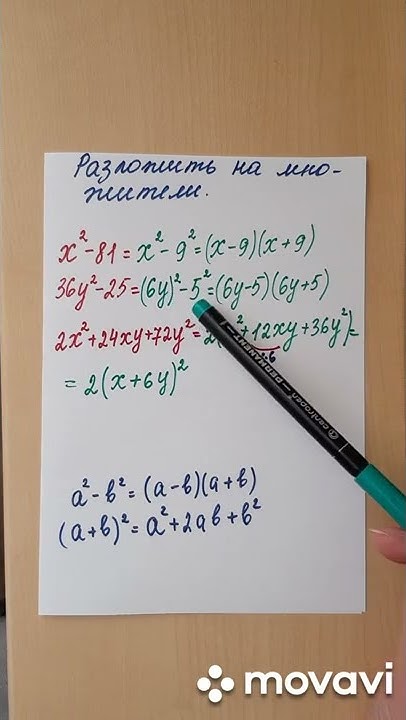 Разложить на мно-
жители.
x² - 81 = x² - 9² = (x - 9)(x + 9)
36y² - 25 = (6y)² - 5² = (6y - 5)(6y + 5)
2x² + 24xy + 72y² = 2( ² + 12xy + 36y²) =
= 2(x + 6y)²
a² - b² = (a - b)(a + b)
(a + b)² = a² + 2ab + b²
centropen
PERMANENT
movavi